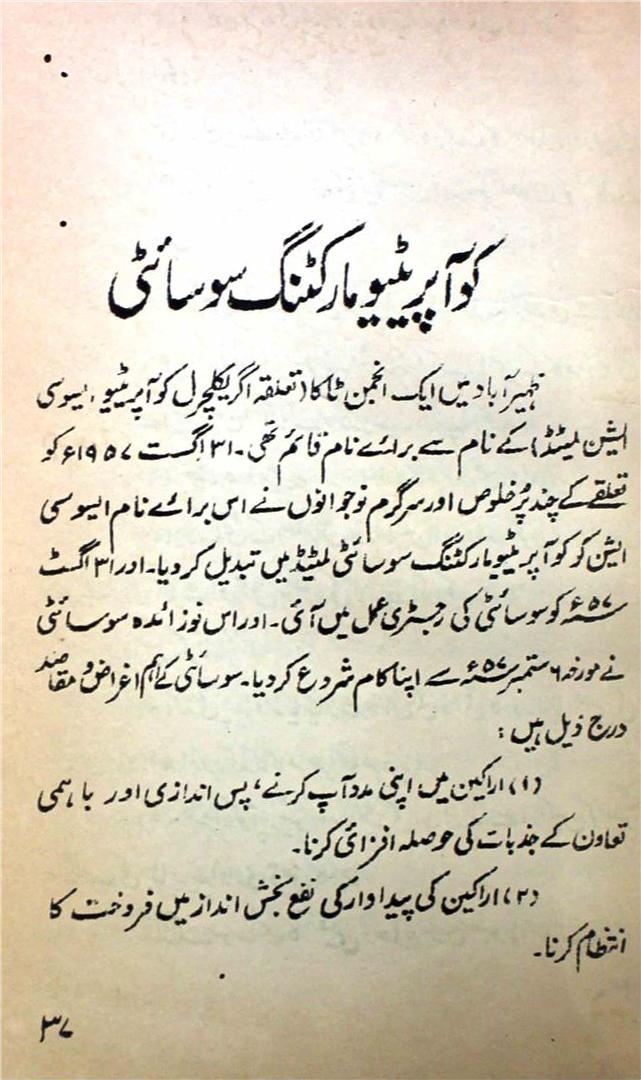 کوآپریٹیو مارکٹنگ سوسائٹی
ظہیرآباد میں ایک انجمن ٹاکا (تعلقہ اگریکلچرل کوآپریٹیو، یسوسی
ایشن لمیٹڈ) کے نام سے برائے نام قائم تھی۔ ۳۱ اگست ۱۹۵۷ء کو
تعلقے کے چند پُرخلوص اور سرگرم نوجوانوں نے اس برائے نام ایسوسی
ایشن کو کوآپریٹیو مارکٹنگ سوسائٹی لمٹیڈ میں تبدیل کردیا۔ اور ۳۱ اگسٹ
۵۷ء کو سوسائٹی کی رجسٹری عمل میں آئی۔ اور اس نوزائدہ سوسائٹی
نے مورخہ ۶ ستمبر ۵۷ء سے اپنا کام شروع کردیا۔ سوسائٹی کے اہم اغراض و مقاصد
درج ذیل ہیں:
(۱) اراکین میں اپنی مدد آپ کرنے، پس اندازی اور باہمی
تعاون کے جذبات کی حوصلہ افزائی کرنا۔
(۲) اراکین کی پیداوار کی نفع بخش انداز میں فروخت کا
انتظام کرنا۔
۳۷